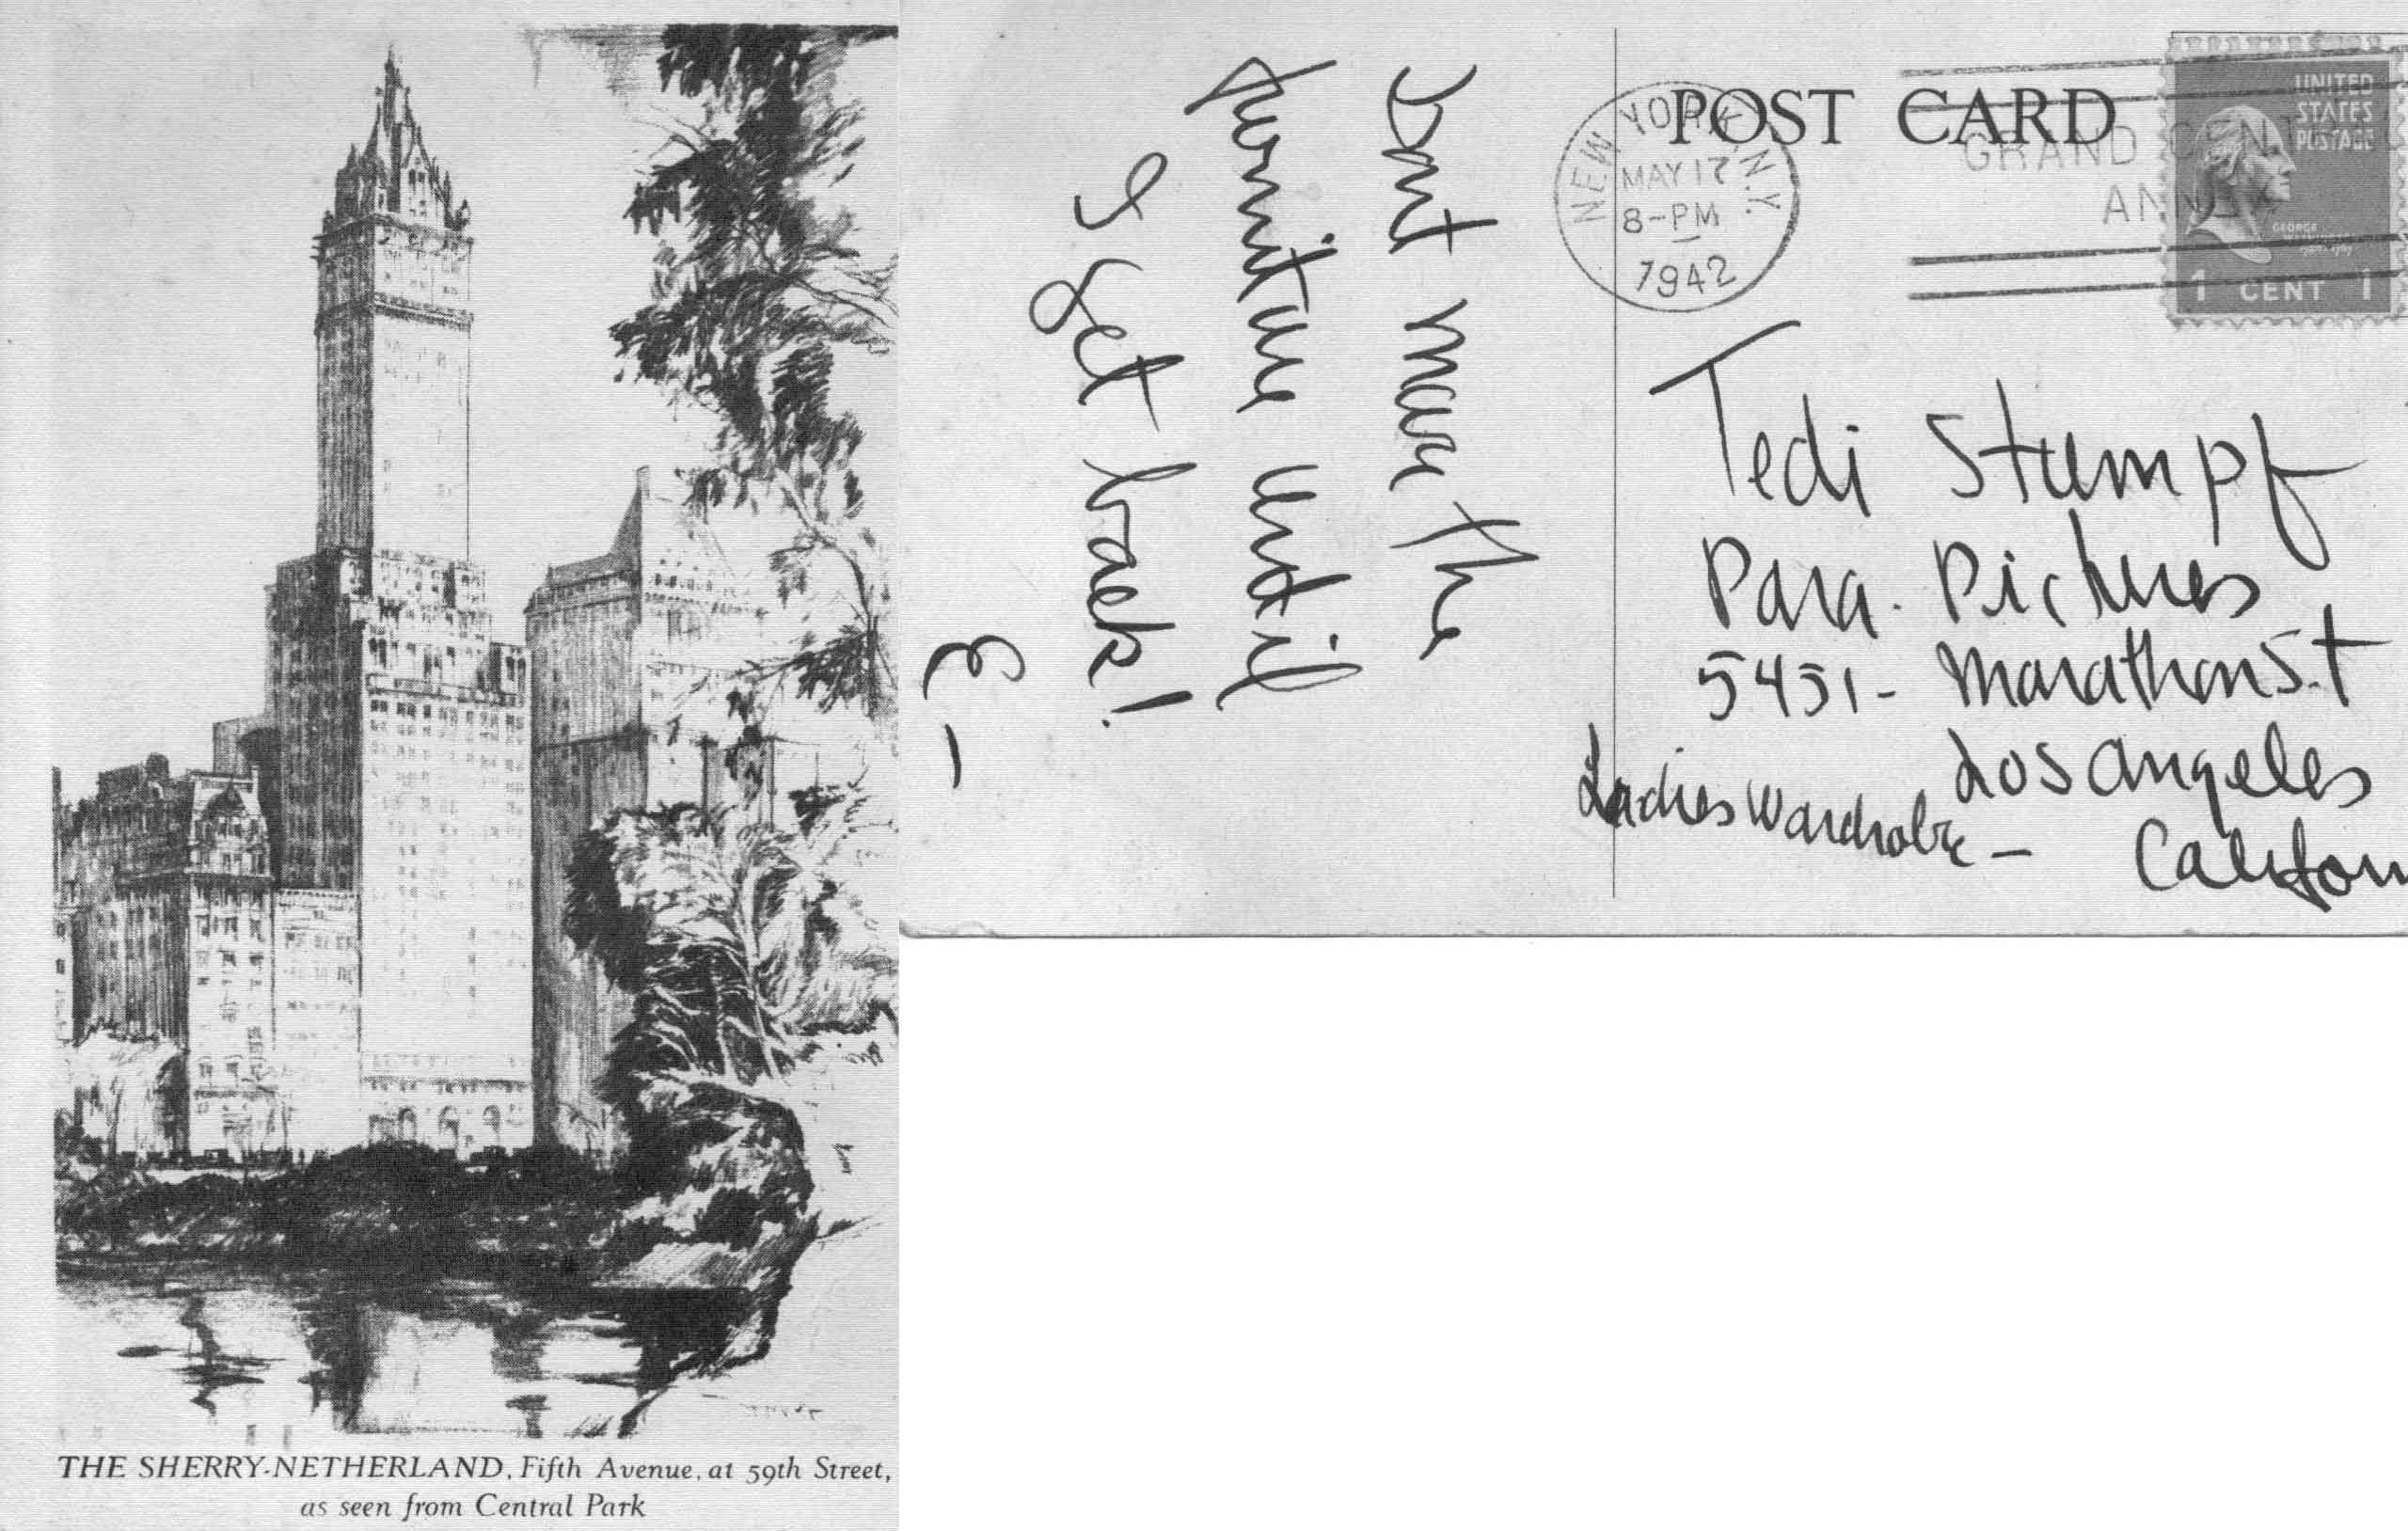 THE SHERRY-NETHERLAND, Fifth Avenue, at 59th Street,
as seen from Central Park
Dont move the
furniture until
I get back!
E-
POST CARD
NEW YORK, N.Y.
MAY 17
8-PM
1942
GRAND CENT
ANN
UNITED
STATES
POSTAGE
GEORGE
WASHINGTON
1 CENT 1
Tedi Stumpf
Para. Pictures
5451- Marathon St
Los Angeles
Ladies Wardrobe -
Californ